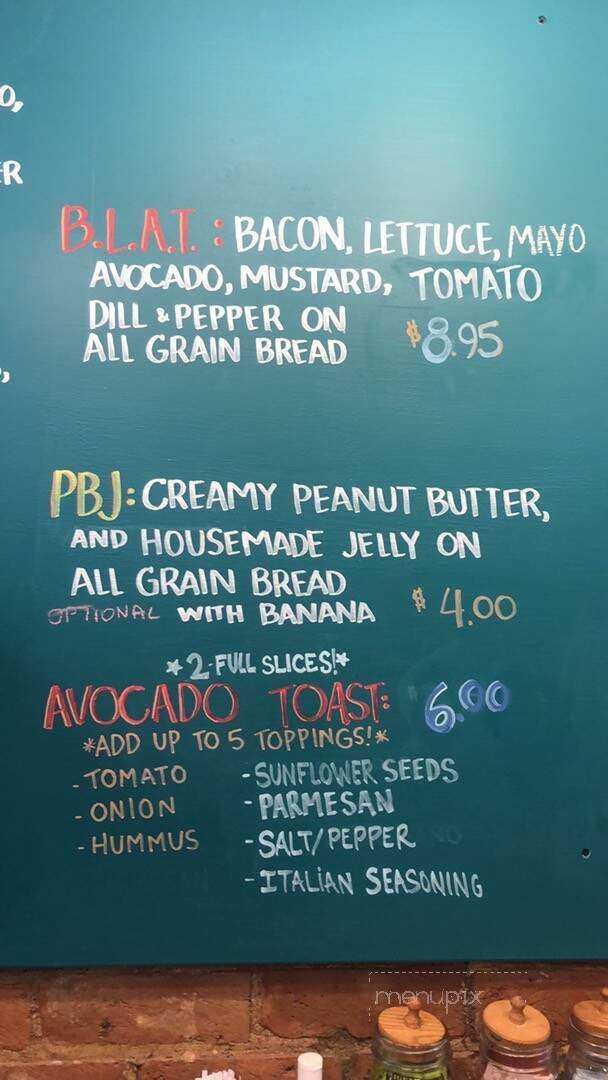 O,
ER
B.L.A.T. : BACON, LETTUCE, MAYO
AVOCADO, MUSTARD, TOMATO
DILL & PEPPER ON
ALL GRAIN BREAD $8.95
,
PBJ: CREAMY PEANUT BUTTER,
AND HOUSEMADE JELLY ON
ALL GRAIN BREAD
OPTIONAL WITH BANANA $4.00
*2-FULL SLICES!*
AVOCADO TOAST: 6.00
*ADD UP TO 5 TOPPINGS!*
- TOMATO - SUNFLOWER SEEDS
- ONION - PARMESAN
- HUMMUS - SALT/PEPPER
- ITALIAN SEASONING
menupix